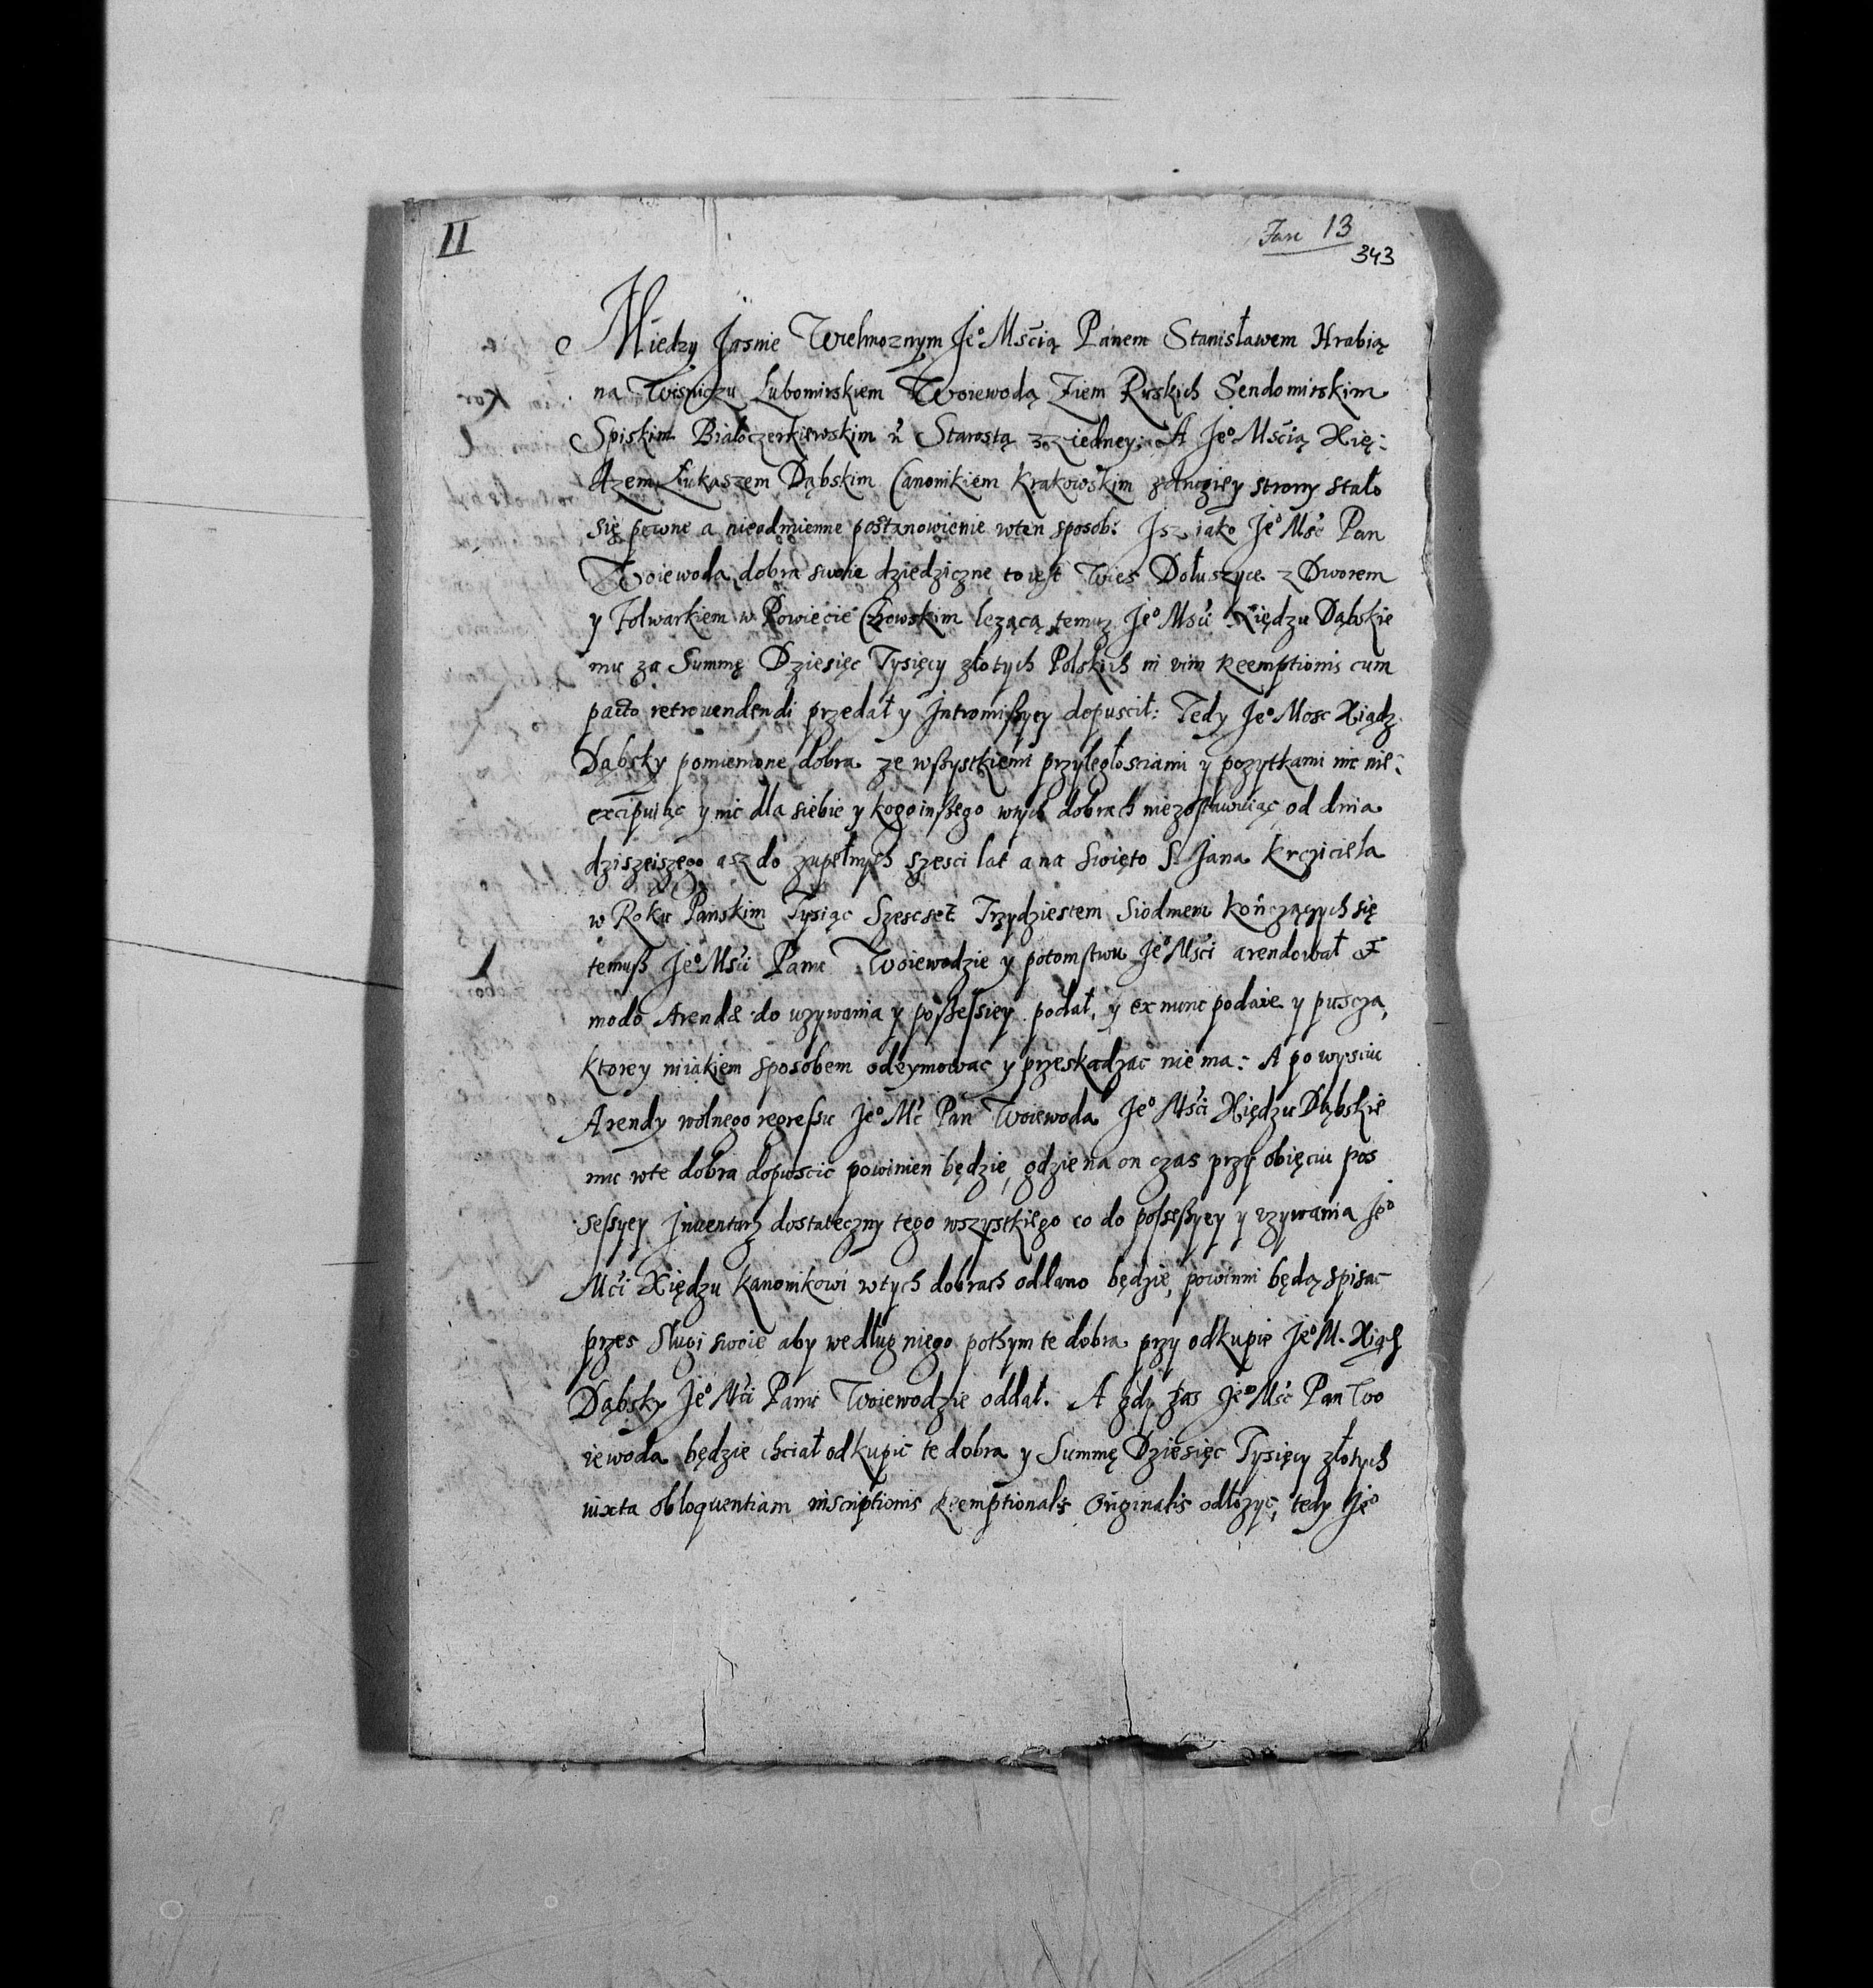 II
Jan 13
343
Miedzy Jasnie Wielmoznym Je° Mścią Panem Stanisławem Hrabią
na Wisniczu Lubomirskiem Woiewodą Ziem Ruskich Sendomirskim
Spiskim Białoczerkiewskim &c Starostą z iedney: A Je° Mścią Xię:
dzem Łukaszem Dąbskim Canonikiem Krakowskim zdrugiey strony stało
się pewne a nieodmienne postanowienie wten sposob: Jsz iako Je° Msć Pan
Woiewoda dobra swoie dziedziczne toiest Wies Dołuszyce z Dworem
y Folwarkiem w Powiecie lezącą temuz Je° Msci Xiędzu Dąbskie
mu za Summę Dziesięc Tysięcy złotych Polskich in vim Reemptionis cum
pacto retrouendendi przedał y Jntromißyey dopuscił: Tedy Je° Mosc Xiądz
Dąbsky pomienione dobra ze wßystkiemi przyległosciami y pozytkami nic nie:
excipuiąc y nic dla siebie y kogoinßego wtych dobrach niezostawuiąc od dnia
dziszeiszego asz do zupełnych szesci lat a na Swięto S Jana Krzciciela
w Roku Pańskim Tysiąc Szescset Trzydziestem Siodmem kończących się
temuß Je° Mści Panu Woiewodzie y potomstwu Je° Mści arendował &
modo Arendæ do uzywania y poßessiey podał, y ex nunc podaie y puscza,
ktorey niiakiem sposobem odeymowac y przeskadzac nie ma: A po wysciu
Arendy wolnego regressu Je° Mć Pan Woiewoda Je° Mści Xiędzu Dąbskie
mu wte dobra dopuscic powinien będzie, gdzie na on czas przy obięciu pos
sessyey Jnuentarz dostateczny tego wszystkiego co do possessyey y vzywania Je°
Mći Xiędzu Kanonikowi wtych dobrach oddano będzie, powinni będą spisac
przes Sługi swoie aby według niego pothym te dobra przy odkupie Je° M. Xiądz
Dąbsky Je° Mći Panu Woiewodzie oddał. A gdy zas Je° Mść Pan Wo
iewoda będzie chciał odkupić te dobra y Summę Dziesięc Tysięcy złotych
iuxta obloquentiam inscriptionis Reemptionalis Originalis odłozyc, tedy Je°